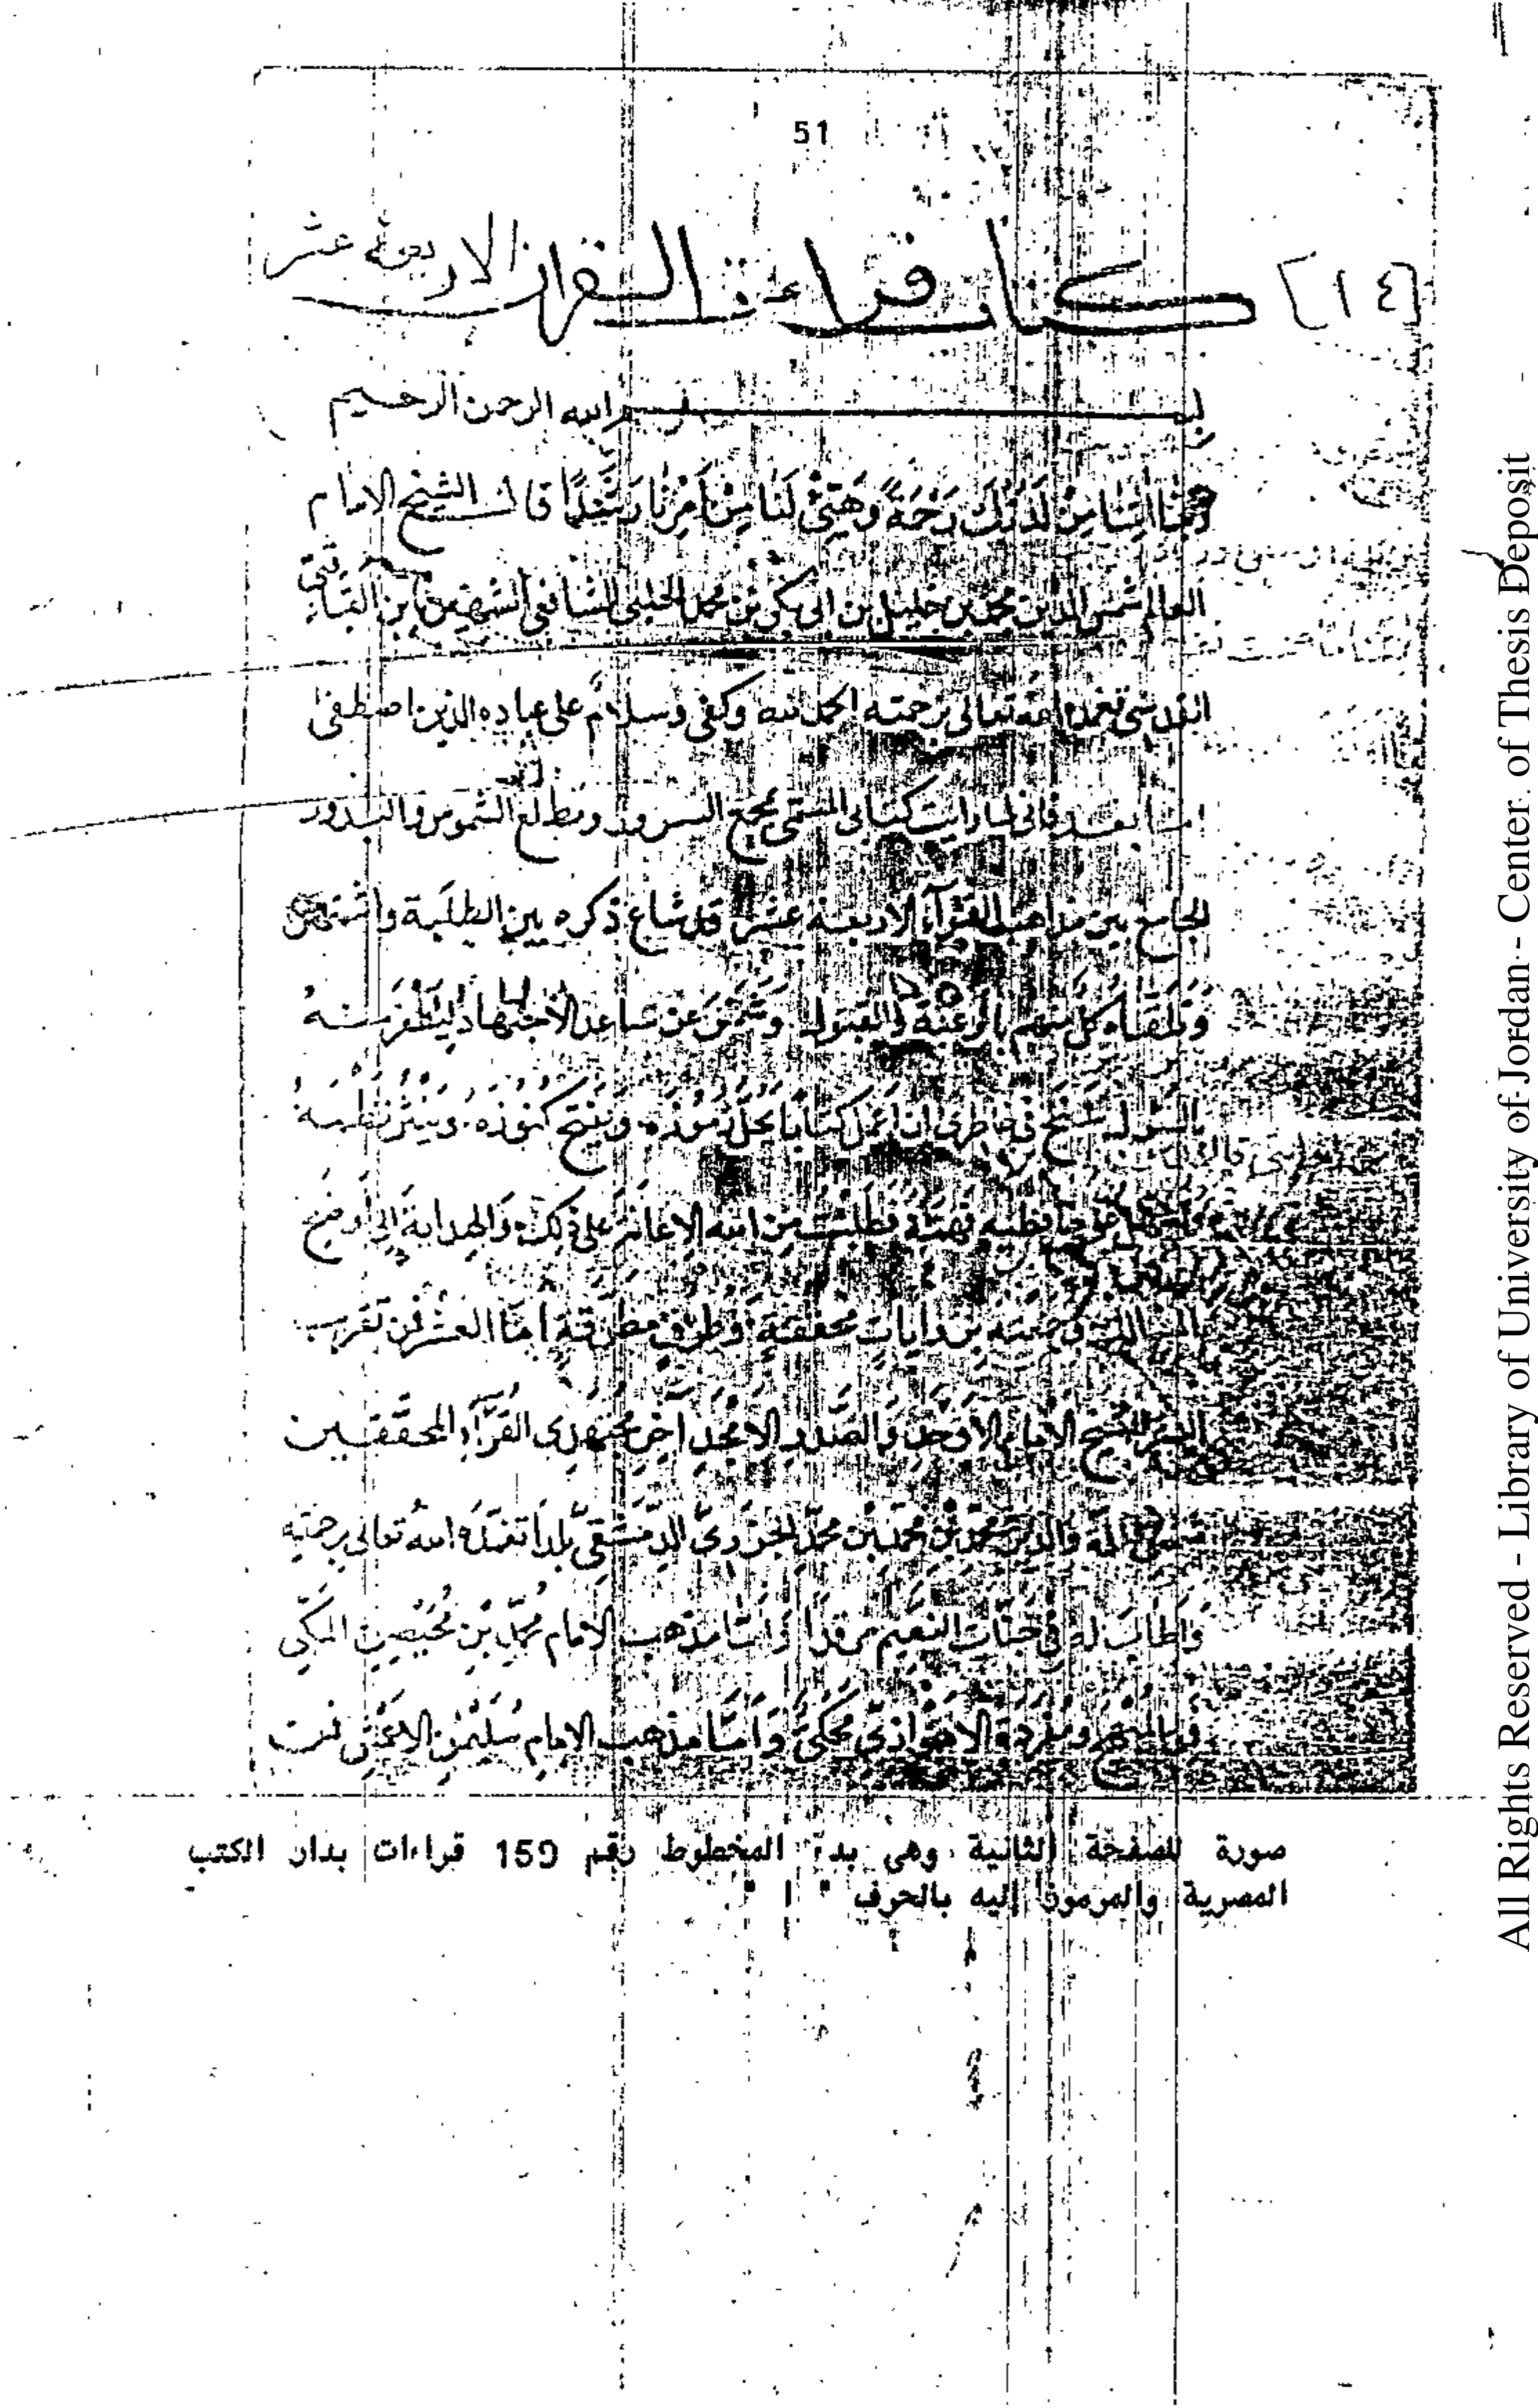 51
[١٤] كتاب قراءت القران الاربعة عشر
بسم الله الرحمن الرحيم
ربنا اتنا من لدنك رحمة وهيئ لنا من امرنا رشدا قال الشيخ الامام
العالم شمس الدين محمد بن خليل بن ابي بكر بن محمد الحلبي الشافعي الشهير بابن القباقبى
القدسى تغمده الله تعالى برحمته الحمد لله وكفى وسلام على عباده الذين اصطفى
اما بعد فانى لما رايت كتابى المسمى بمجمع السرور ومطلع الشموس والبدور
الجامع بين مذاهب القرآء الاربعة عشر قد شاع ذكره بين الطلبة واشتهر
وتلقاه كل منهم بالرغبة والقبول وشمر عن ساعد الاجتهاد ليظفر منه
بالسول سنح في خاطرى ان اعمل كتابا يحل رموزه ويفتح كنوزه وينثر نظمه
حافظيه فهمه فطلبت من الله الاعانة على ذلك والهداية الى اوضح
المسالك من روايات محققة وطرق اما العشر فمن تقريب
النشر للشيخ الامام الاوحد والصدر الامجد آخر مجتهدى القرآء المحققين
شمس الملة والدين محمد بن محمد بن محمد الجزرى الدمشقى بلدا تغمده الله تعالى برحمته
واطاب له فى جنات النعيم مرقدا واما مذهب الامام محمد بن محيصن المكى
فمن المبهج ومفردة الاهوازى محكى واما مذهب الامام سليمن الاعمش فمن
صورة للصفحة الثانية وهى بدء المخطوط رقم 159 قراءات بدار الكتب
المصرية والمرموز إليه بالحرف " ا "
All Rights Reserved - Library of University of Jordan - Center of Thesis Deposit